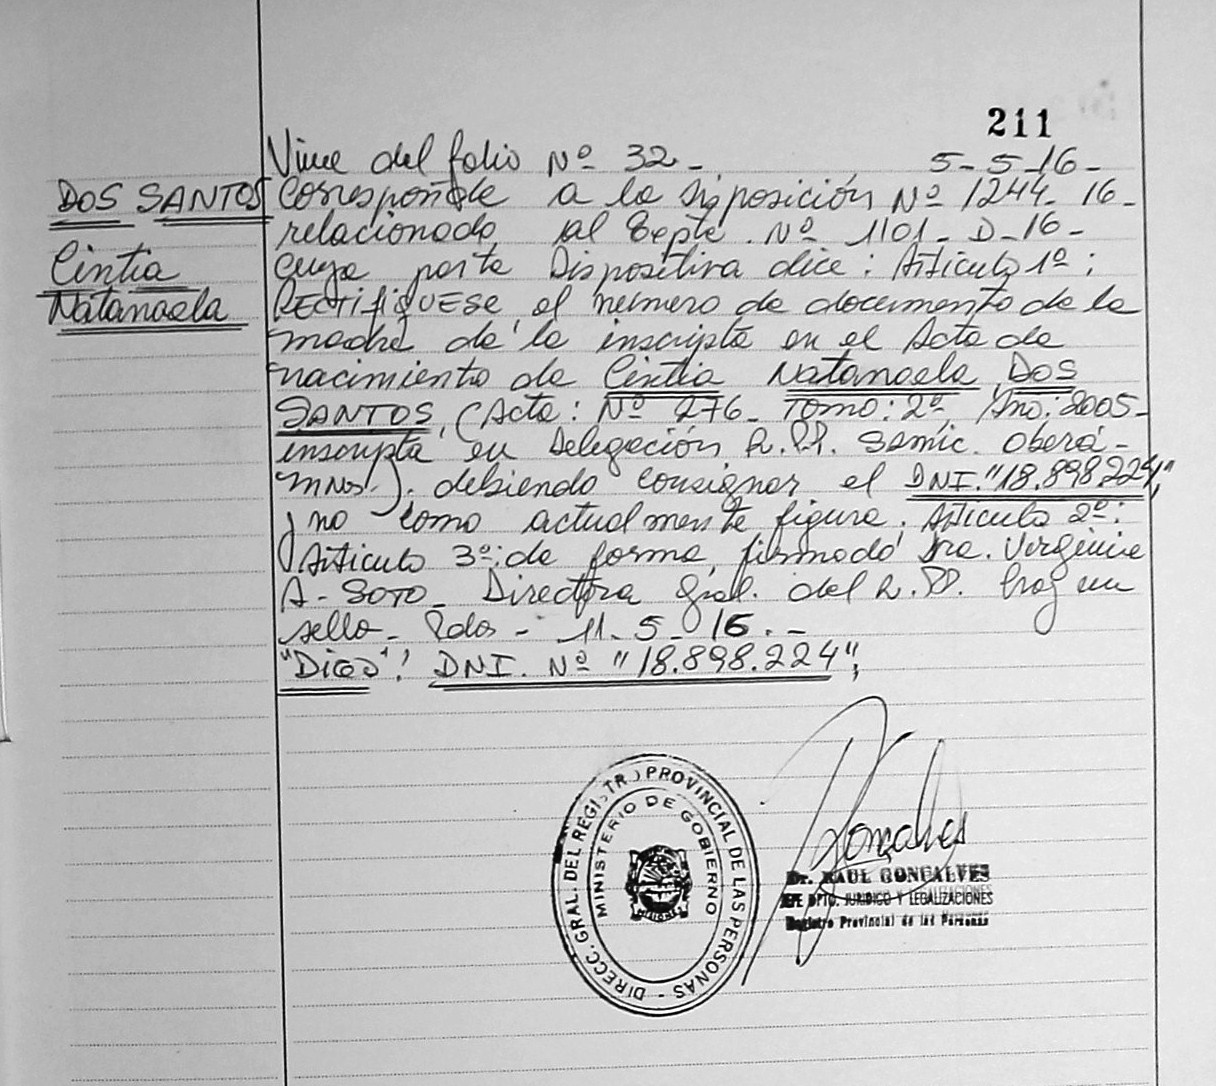 211
Viene del folio Nº 32 - 5-5-16-
DOS SANTOS
Cintia
Natanaela
Corresponde a la Disposición Nº 1244-16-
relacionado al Expte. Nº 1101-D-16-
cuya parte Dispositiva dice: Artículo 1º:
RECTIFIQUESE el número de documento de la
madre de la inscripta en el Acta de
nacimiento de Cintia Natanaela DOS
SANTOS, (Acta: Nº 276- Tomo: 2º Año: 2005-
inscripta en Delegación R.PP. Samic. Oberá-
MNes.). debiendo consignar el DNI. "18.898.224",
y no como actualmente figura. Artículo 2º:
Artículo 3º: de forma, firmado Dra. Virginia
A- SOTO- Directora Gral. del R.PP. hay un
sello- Pdas - 11-5-16.-
"Digo": DNI. Nº "18.898.224",
DIRECC. GRAL. DEL REGISTRO PROVINCIAL DE LAS PERSONAS -
MINISTERIO DE GOBIERNO
MISIONES
Gonçalves
Dr. RAUL GONÇALVES
JEFE DPTO. JURIDICO Y LEGALIZACIONES
Registro Provincial de las Personas